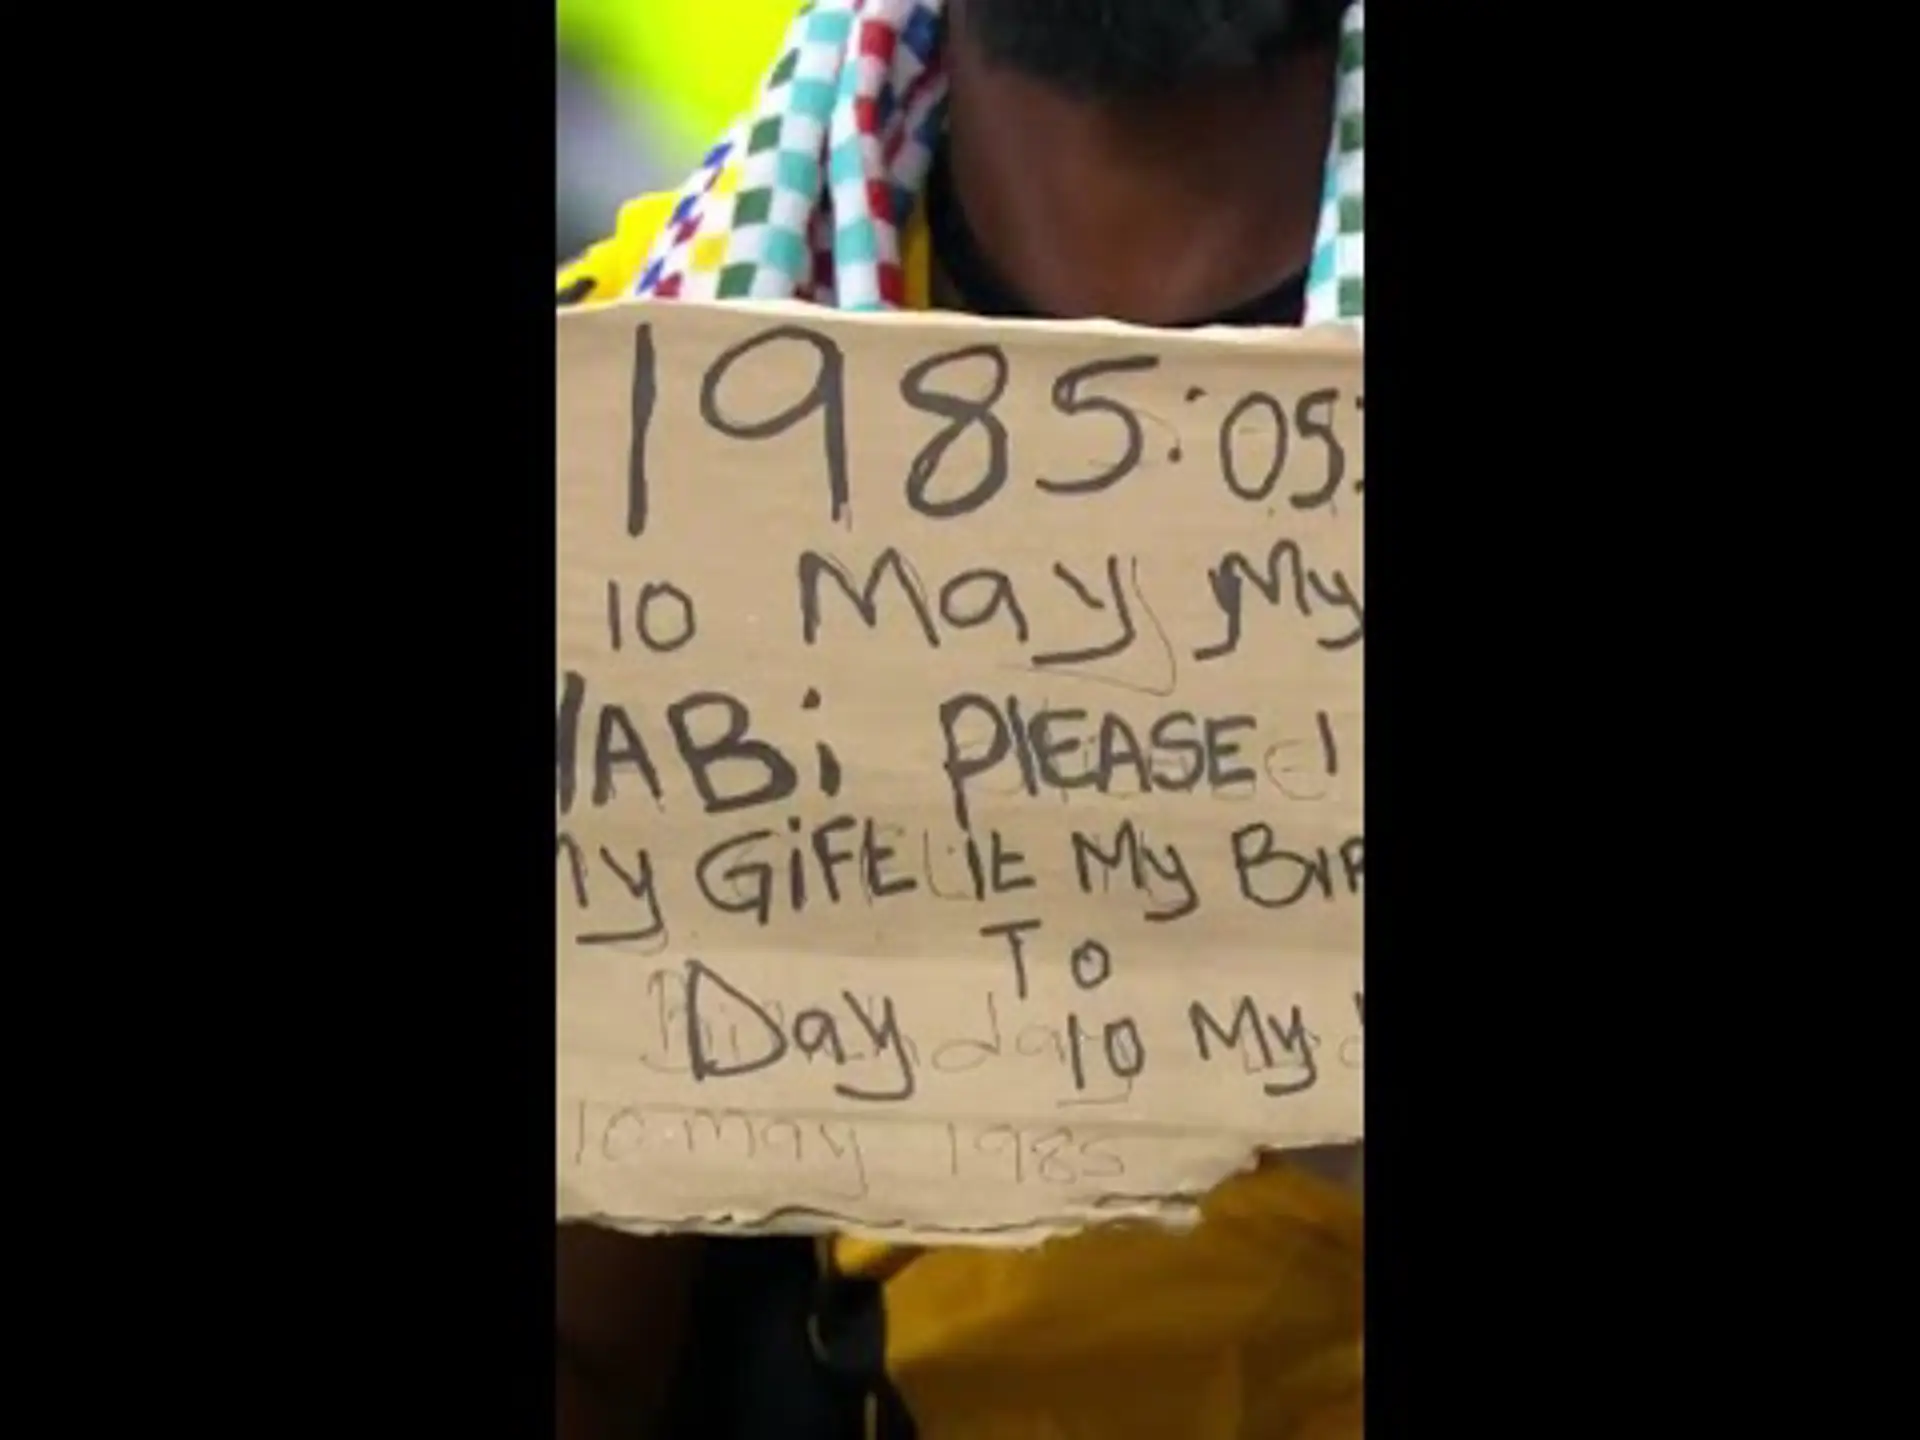 1985:05:
10 May My
ABi PlEASE I
My GiFt it My BIR
TO
Day 10 My
10 may 1985